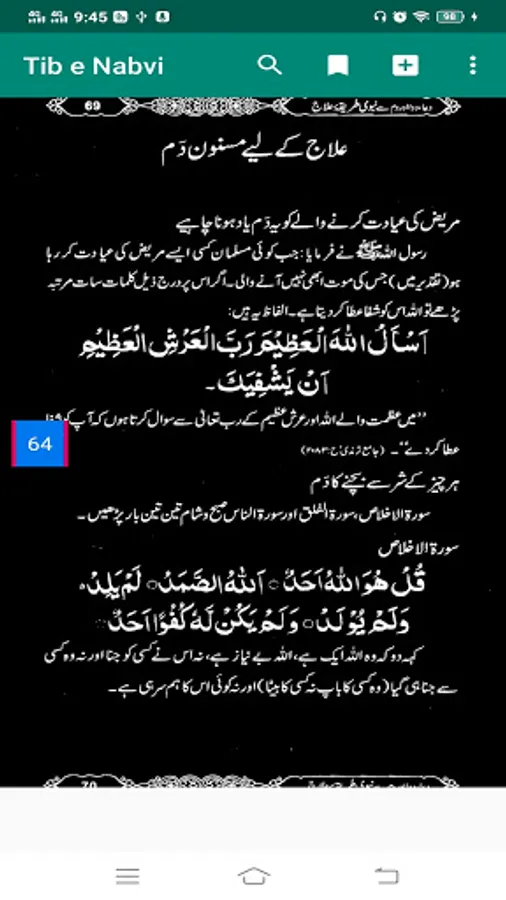 9:45
98
Tib e Nabvi
69
علاج کے لیے مسنون دَم
مریض کی عیادت کرنے والے کو یہ دَم یاد ہونا چاہیے
رسول اللہ ﷺ نے فرمایا: جب کوئی مسلمان کسی ایسے مریض کی عیادت کر رہا
ہو (تقدیر میں) جس کی موت ابھی نہیں آنے والی۔ اگر اس پر درج ذیل کلمات سات مرتبہ
پڑھے تو اللہ اس کو شفا عطا کر دیتا ہے۔ الفاظ یہ ہیں:
اَسْأَلُ اللهَ الْعَظِيْمَ رَبَّ الْعَرْشِ الْعَظِيْمِ
اَنْ يَشْفِيَكَ۔
’’میں عظمت والے اللہ اور عرش عظیم کے رب تعالیٰ سے سوال کرتا ہوں کہ آپ کو
64
عطا کر دے‘‘۔ (جامع ترمذی ح:۲۰۸۳)
ہر چیز کے شر سے بچنے کا دَم
سورۃ الاخلاص، سورۃ الفلق اور سورۃ الناس صبح و شام تین تین بار پڑھیں۔
سورۃ الاخلاص
قُلْ هُوَ اللهُ اَحَدٌ ۝ اَللهُ الصَّمَدُ ۝ لَمْ يَلِدْ ۙ
وَلَمْ يُوْلَدْ ۝ وَلَمْ يَكُنْ لَّهٗ كُفُوًا اَحَدٌ ۝
کہہ دو کہ وہ اللہ ایک ہے، اللہ بے نیاز ہے، نہ اس نے کسی کو جنا اور نہ وہ کسی
سے جنا ہی گیا (وہ کسی کا باپ نہ کسی کا بیٹا) اور نہ کوئی اس کا ہم سر ہی ہے۔
70